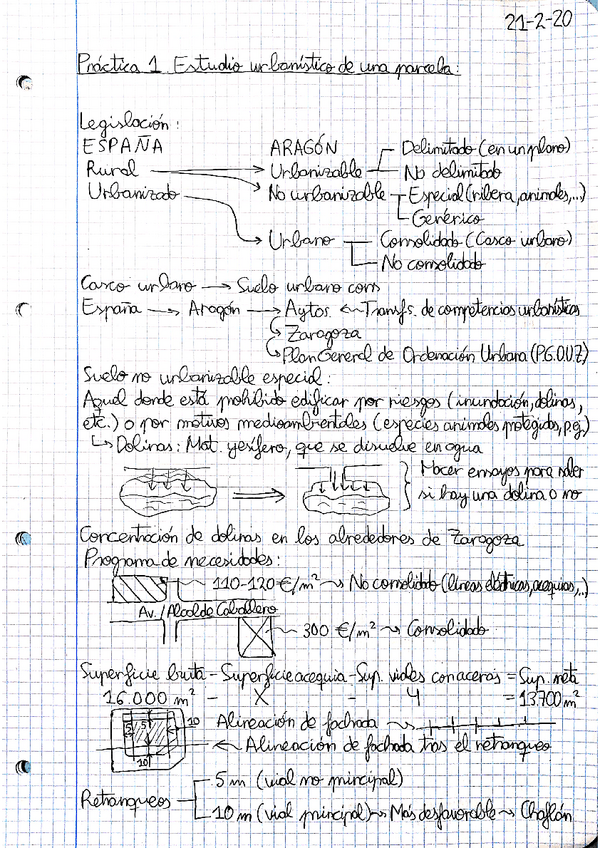 21-2-20
Práctica 1. Estudio urbanístico de una parcela:
Legislación:
ESPAÑA ARAGÓN Delimitado (en un plano)
Rural → Urbanizable No delimitado
Urbanizado → No urbanizable Especial (ribera, animales,...)
Genérico
→ Urbano Consolidado (Casco urbano)
No consolidado
Casco urbano → Suelo urbano cons
España → Aragón → Aytos. ← Transfs. de competencias urbanísticas
↳ Zaragoza
↳ Plan General de Ordenación Urbana (P.G.O.U.Z)
Suelo no urbanizable especial:
Aquel donde está prohibido edificar por riesgos (inundación, dolinas,
etc.) o por motivos medioambientales (especies animales protegidas, p.ej.)
↳ Dolinas: Mat. yesífero, que se disuelve en agua
Hacer ensayos para saber
si hay una dolina o no
Concentración de dolinas en los alrededores de Zaragoza
Programa de necesidades:
110-120 €/m² → No consolidado (líneas eléctricas, acequias,..)
Av. Alcalde Caballero
300 €/m² → Consolidado
Superficie bruta - Superficie acequia - Sup. viales con aceras = Sup. neta
16.000 m² - X - Y = 13.700 m²
5 5 10 Alineación de fachada →
10 ← Alineación de fachada tras el retranqueo
Retranqueos 5 m (vial no principal)
10 m (vial principal) → Más desfavorable → Chaflán